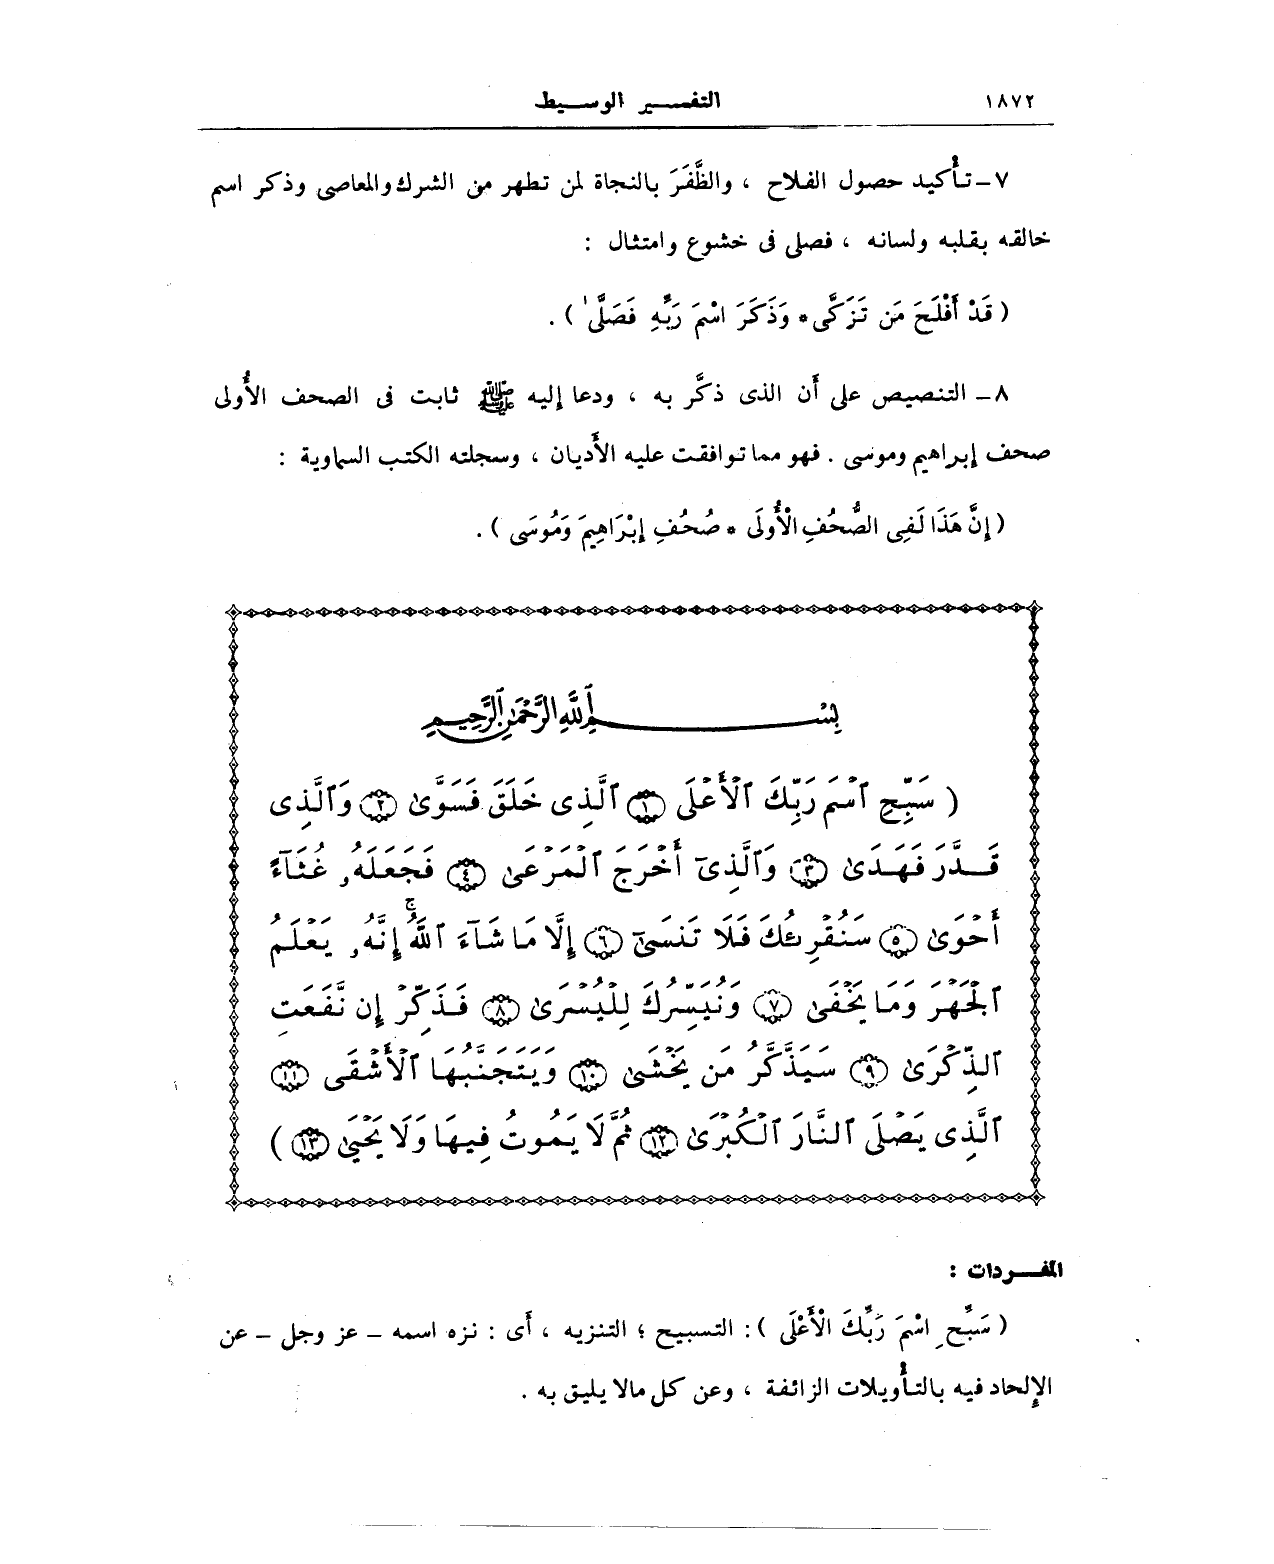 ١٨٧٢ التفسير الوسيط
٧ـ تأكيد حصول الفلاح ، والظَّفَرَ بالنجاة لمن تطهر من الشرك والمعاصى وذكر اسم
خالقه بقلبه ولسانه ، فصلى فى خشوع وامتثال :
( قَدْ أَفْلَحَ مَن تَزَكَّى * وَذَكَرَ اسْمَ رَبِّهِ فَصَلَّىٰ ) .
٨ـ التنصيص على أن الذى ذكَّر به ، ودعا إليه ﷺ ثابت فى الصحف الأُولى
صحف إبراهيم وموسى . فهو مما توافقت عليه الأديان ، وسجلته الكتب السماوية :
( إِنَّ هَذَا لَفِى الصُّحُفِ الْأُولَى * صُحُفِ إِبْرَاهِيمَ وَمُوسَى ) .
بِسْمِ ٱللَّهِ ٱلرَّحْمَٰنِ ٱلرَّحِيمِ
( سَبِّحِ ٱسْمَ رَبِّكَ ٱلْأَعْلَى ١ ٱلَّذِى خَلَقَ فَسَوَّىٰ ٢ وَٱلَّذِى
قَدَّرَ فَهَدَىٰ ٣ وَٱلَّذِىٓ أَخْرَجَ ٱلْمَرْعَىٰ ٤ فَجَعَلَهُۥ غُثَآءً
أَحْوَىٰ ٥ سَنُقْرِئُكَ فَلَا تَنسَىٰٓ ٦ إِلَّا مَا شَآءَ ٱللَّهُ ۚ إِنَّهُۥ يَعْلَمُ
ٱلْجَهْرَ وَمَا يَخْفَىٰ ٧ وَنُيَسِّرُكَ لِلْيُسْرَىٰ ٨ فَذَكِّرْ إِن نَّفَعَتِ
ٱلذِّكْرَىٰ ٩ سَيَذَّكَّرُ مَن يَخْشَىٰ ١٠ وَيَتَجَنَّبُهَا ٱلْأَشْقَى ١١
ٱلَّذِى يَصْلَى ٱلنَّارَ ٱلْكُبْرَىٰ ١٢ ثُمَّ لَا يَمُوتُ فِيهَا وَلَا يَحْيَىٰ ١٣ )
المفردات :
( سَبِّحِ اسْمَ رَبِّكَ الْأَعْلَى ) : التسبيح ؛ التنزيه ، أى : نزه اسمه ـ عز وجل ـ عن
الإلحاد فيه بالتأويلات الزائفة ، وعن كل مالا يليق به .